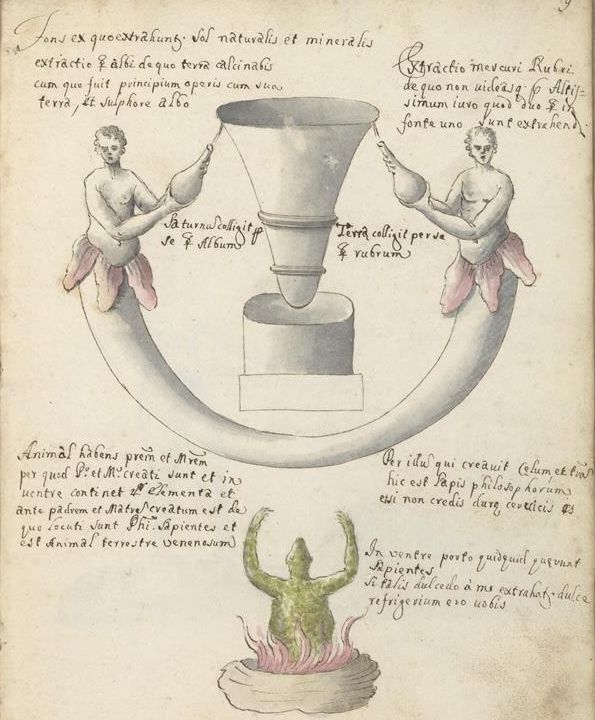 Fons ex quo extrahunt; Sol naturalis et mineralis
extractio ☿ albi de quo terra calcinabis
cum quo fuit principium operis cum sua
terra, et Sulphore albo
Extractio mercuri Rubri
de quo non videas q; p Altis=
simum iuro quod duo ☿ in
fonte uno sunt extrahend;
Saturnus colligit p
se ☿ Album
Terra colligit per se
☿ rubrum
Animal habens prem et Mrem
per quod Pr. et Mr. creati sunt et in
ventre continet 4 Elementa et
ante padrem et Matre creatum est de
quo locuti sunt Phi. Sapientes et
est Animal terrostre venenosum
Per illus qui creavit Celum et
hic est Lapis philosophorum
eisi non credis dure cervicis es
In ventre porto quidquid querunt
Sapientes
Si talis dulcedo à me extrahat; dulce
refrigerium ero vobis